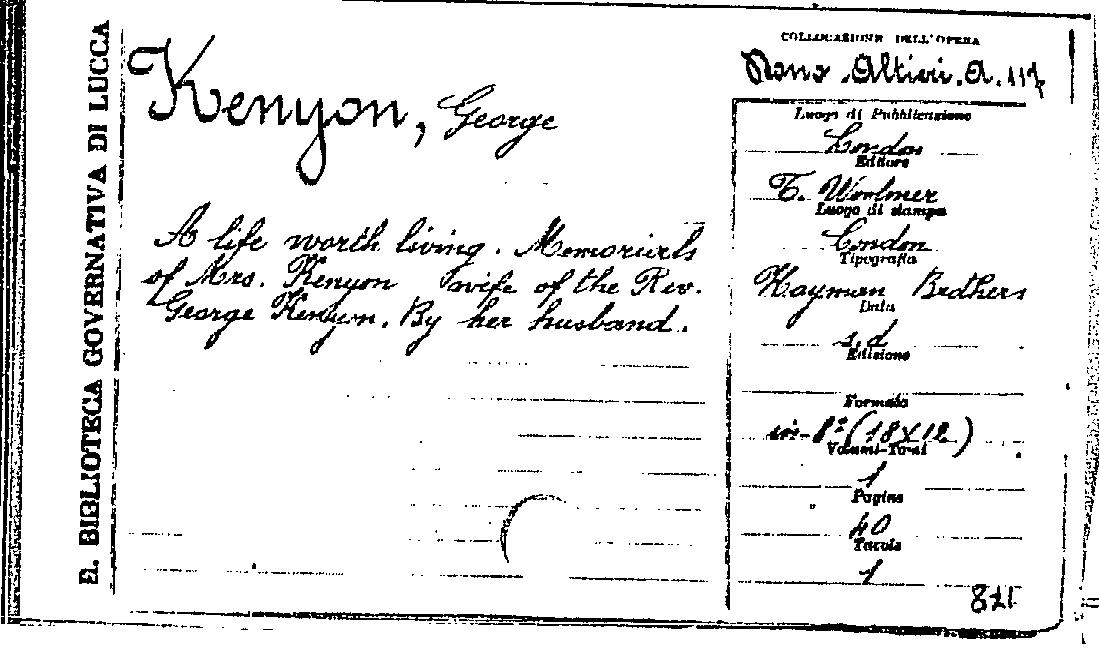 EL BIBLIOTECA GOVERNATIVA DI LUCCA
Kenyon, George
A life worth living. Memorials
of Mrs. Kenyon wife of the Rev.
George Kenyon. By her husband.
COLLOCAZIONE DELL'OPERA
Altieri. A. 117
Luogo di Pubblicazione
London
Editore
T. Woolmer
Luogo di stampa
London
Tipografia
Hayman Brothers
Data
s.d
Edizione
Formato
in-8º (18X12)
Volumi-Tomi
1
Pagine
40
Tavole
1
821